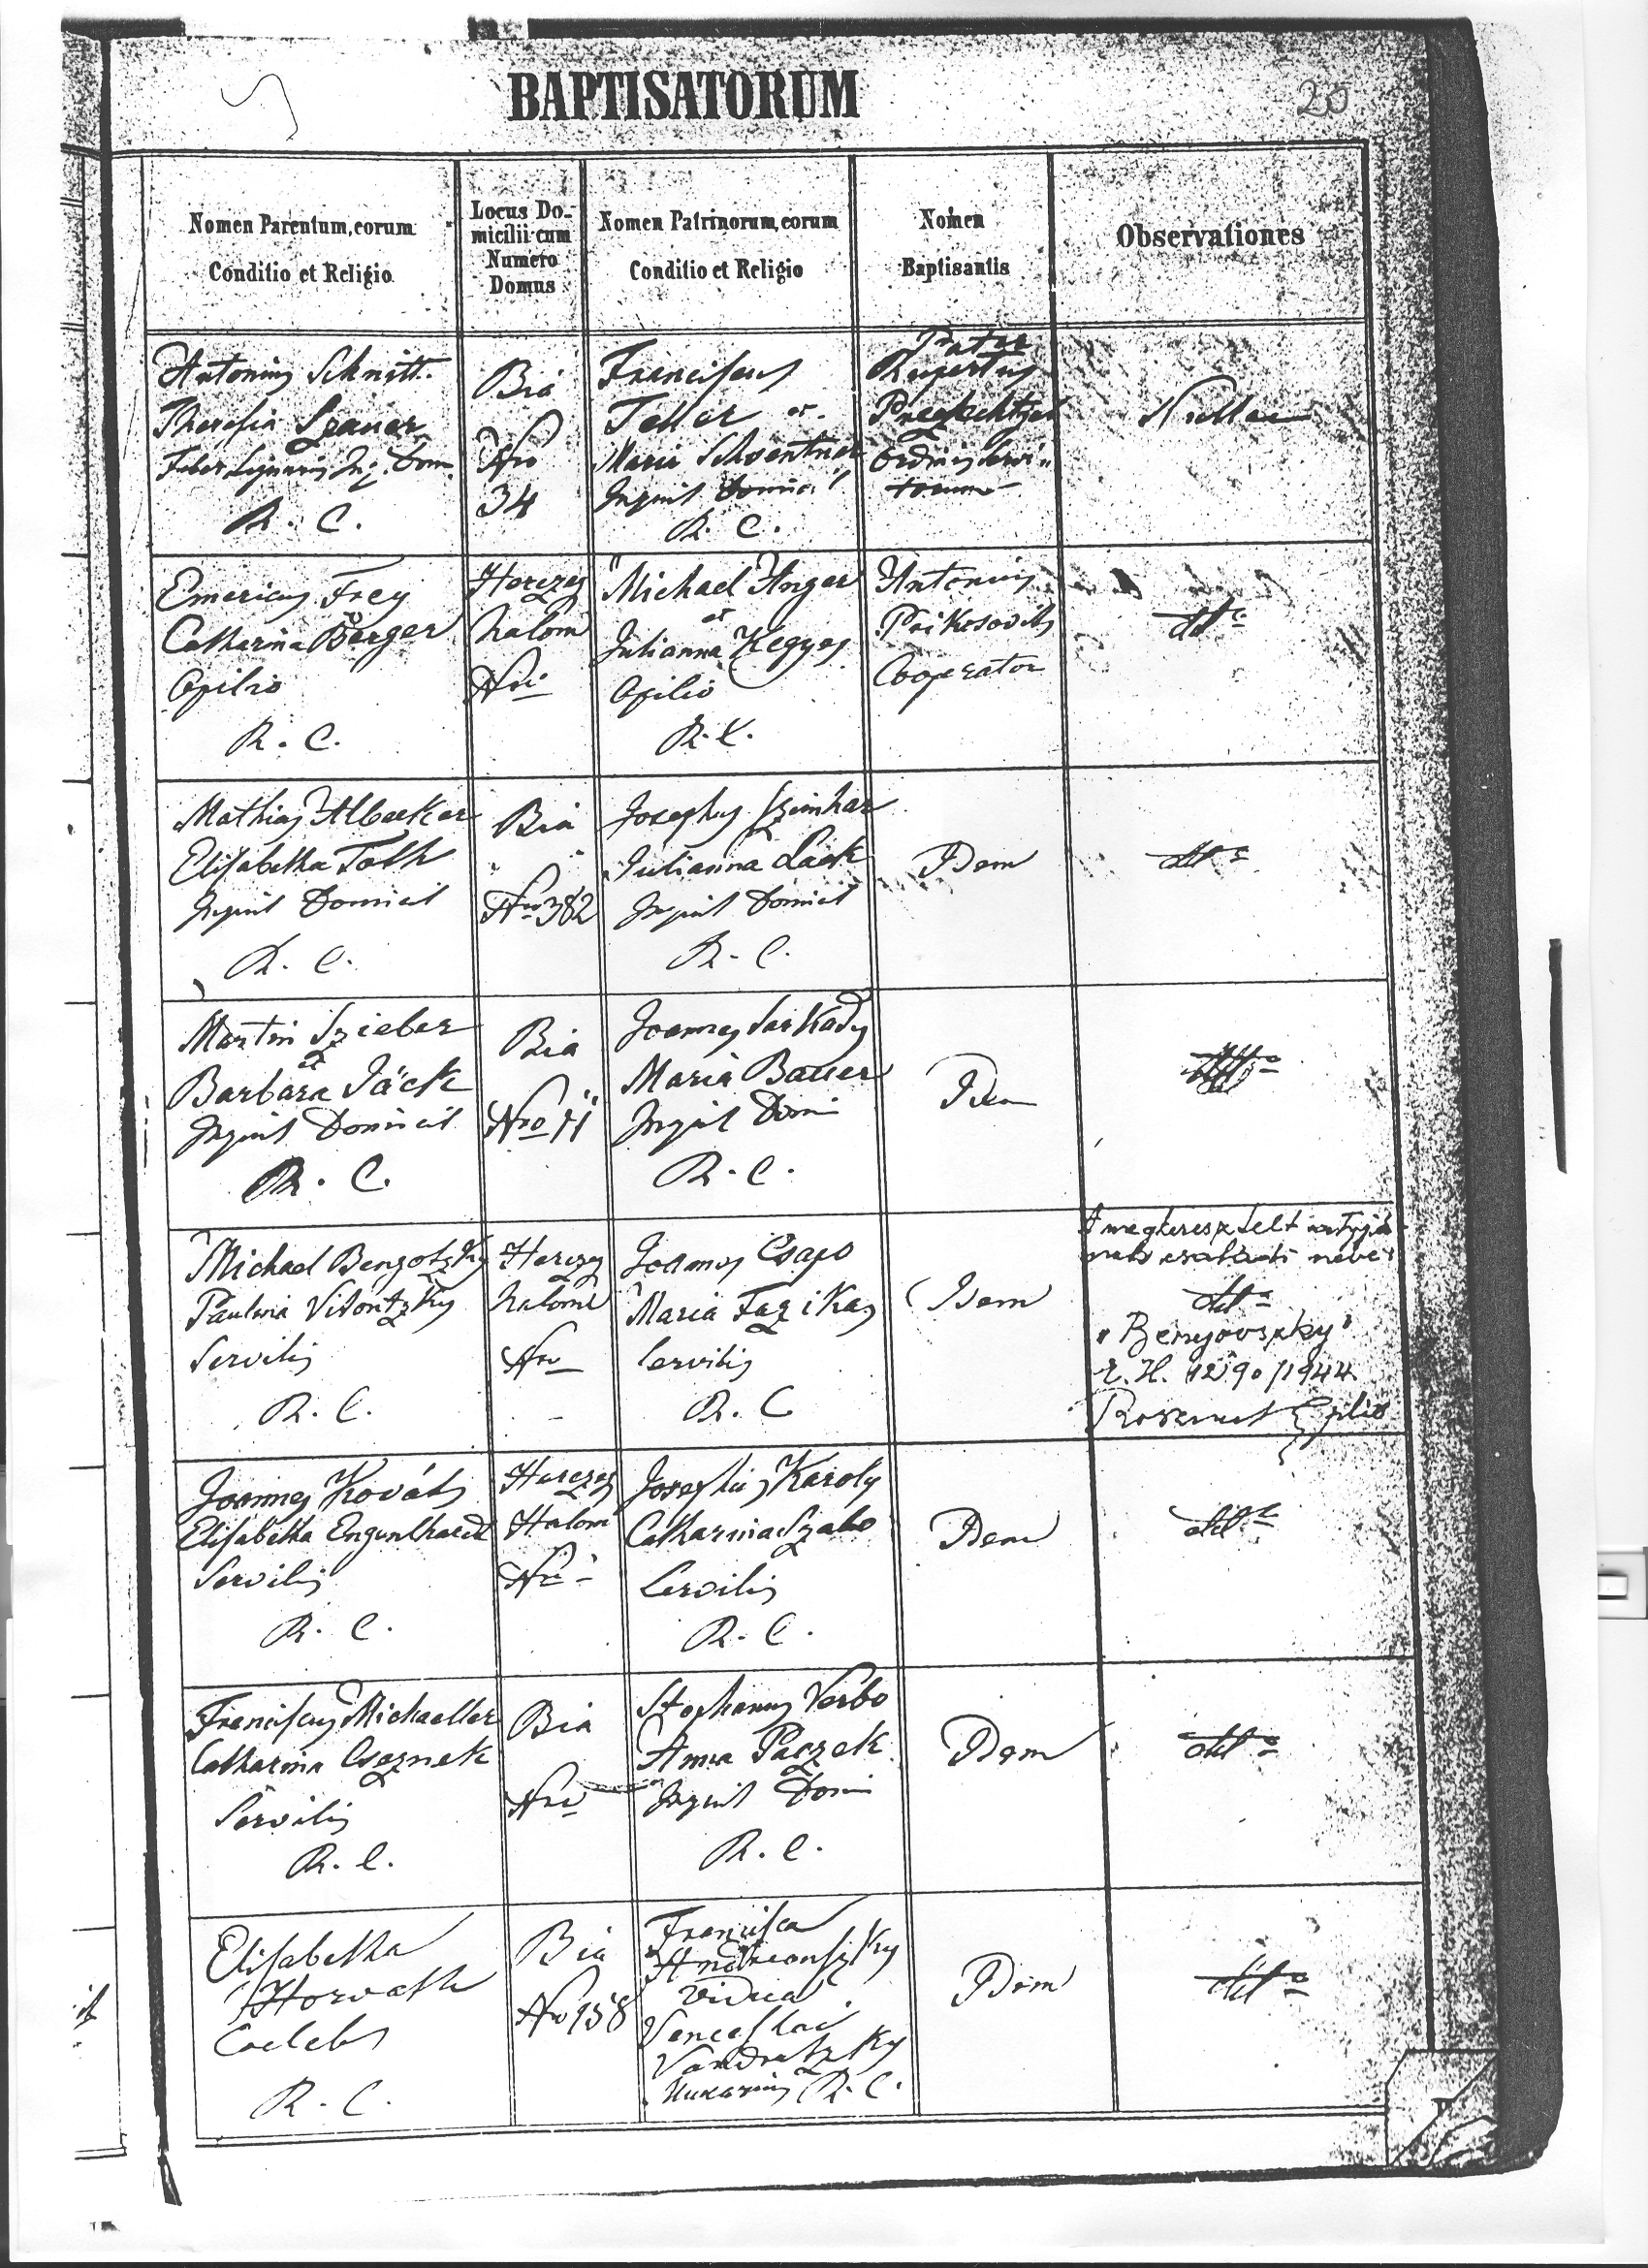 BAPTISATORUM
20
Nomen Parentum, eorum
Conditio et Religio
Locus Do-
micilii cum
Numero
Domus
Nomen Patrinorum, eorum
Conditio et Religio
Nomen
Baptisantis
Observationes
Antonius Schnitt
Theresia Szauer
Faber Lignarius Inq. Dom.
R. C.
Bia
Nro
34
Franciscus
Teller et
Maria Schventner
Inquil Domici
R. C.
Pater
Rupertus
Ordinis Servi
torum
Nullae
Emericus Frey
et
Catharina Berger
Opilio
R. C.
Herczeg
halom
Nro
Michael Unger
et
Julianna Hegyes
Opilio
R. C.
Antonius
Prikosovits
Cooperator
dtto
Mathias Albecker
Elisabetha Toth
Inquil Domicil
R. C.
Bia
Nro 382
Josephus Szimhar
Julianna Lack
Inquil Domicil
R. C.
Idem
dtto
Martin Szieber
et
Barbara Jäck
Inquil Domicil
R. C.
Bia
Nro 11
Joannes Sarkady
Maria Bauer
Inquil Domi
R. C.
Idem
dtto
Michael Benyotzky
Paulina Vitontzky
Servilis
R. C.
Herczeg
halom
Nro
Joannes Csapo
Maria Fazikas
Servilis
R. C
Idem
A megkeresztelt atyjá-
nak családi neve
dtto
"Benyovszky"
E. H. 1290/1944.
Joannes Kováts
Elisabetha Engenlhardt
Servilis
R. C.
Herczeg
Halom
Nro
Josephus Karoly
Catharina Szabo
Servilis
R. C.
Idem
dtto
Franciscus Michaeller
Catharina Csesznek
Servilis
R. C.
Bia
Nro
Stephanus Verbo
Anna Paczek
Inquil Domi
R. C.
Idem
dtto
Elisabetha
Horvath
Caelebs
R. C.
Bia
Nro 158
Francisca
Andreanszky
vidua
Venceslai
Vandratzky
R. C.
Idem
dtto